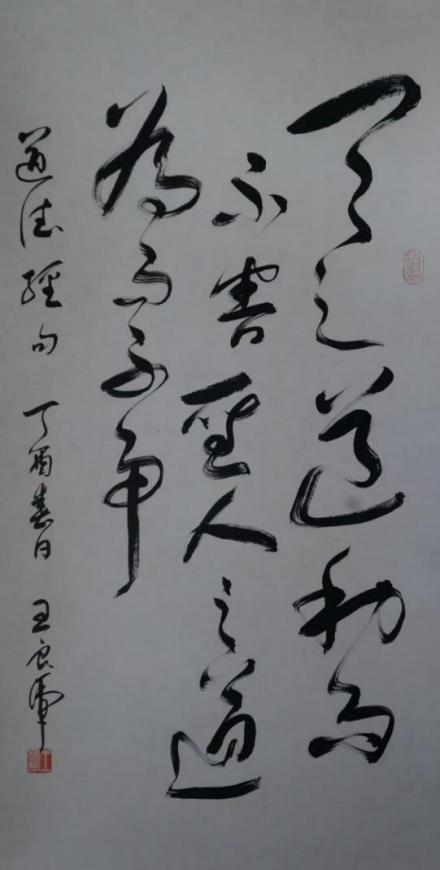 天之道利而
不害聖人之道
為而不争
道德經句 丁酉春日 王良虎